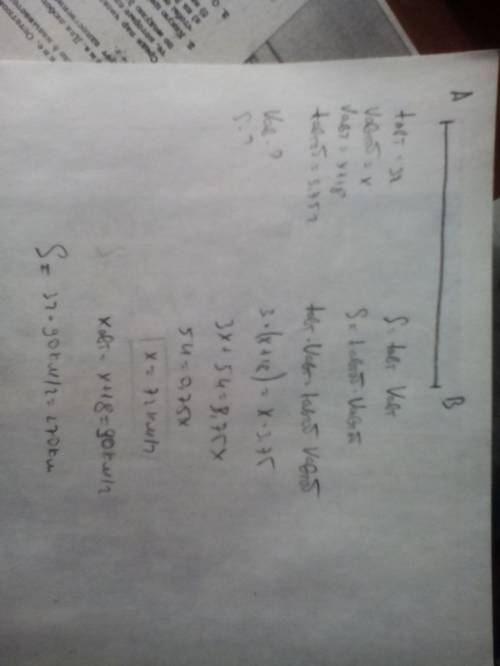 A B
tавт = 3г
Vавтоб = x
Vавт = x+18
tавтоб = 3.75г
Vав - ?
S - ?
S = tавт Vавт
S = tавтоб Vавтоб
tавт · Vавт = tавтоб Vавтоб
3·(x+18) = x·3.75
3x + 54 = 3.75x
54 = 0.75x
x = 72 км/г
Xавт = x+18 = 90 км/г
S = 3г · 90 км/г = 270 км